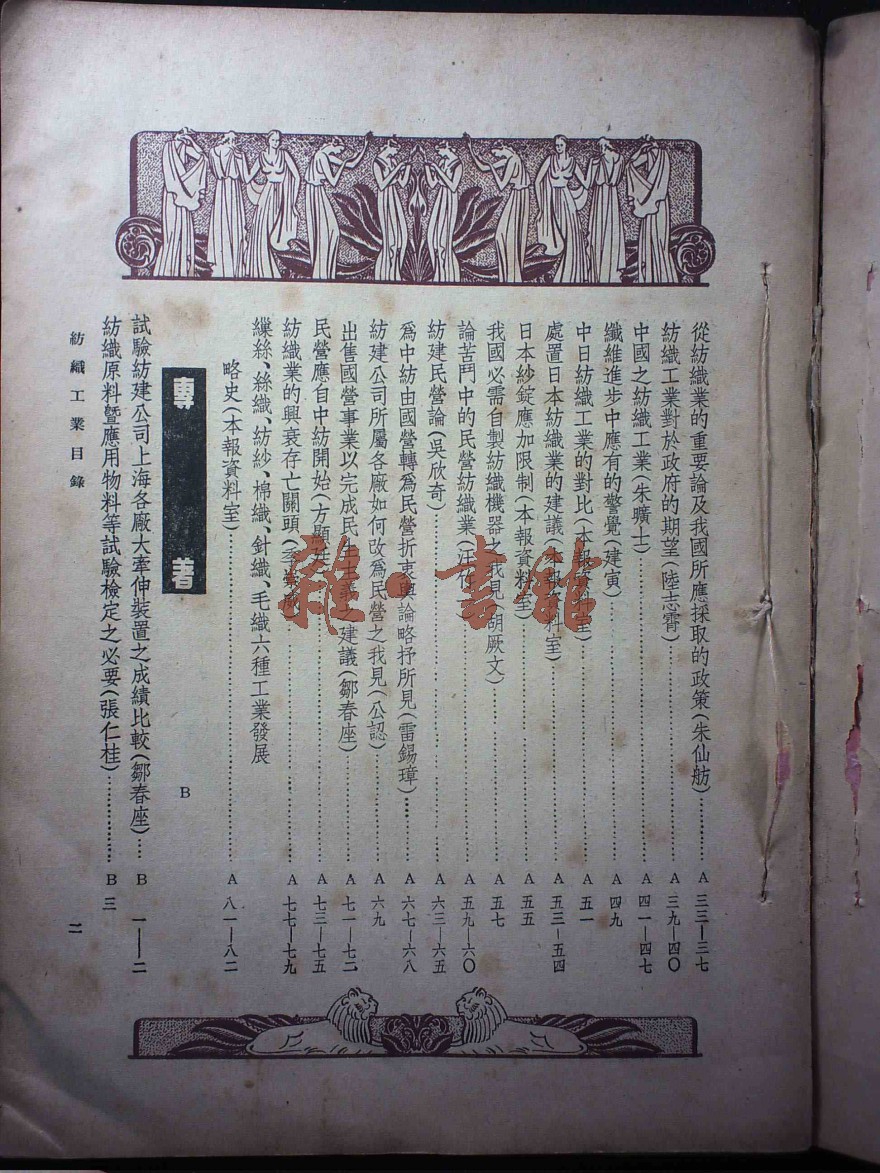 從紡織業的重要論及我國所應採取的政策(朱仙舫)……A 三三—三七
紡織工業對於政府的期望(陸志霄)……A 三九—四〇
中國之紡織工業(朱曠士)……A 四一—四七
纖維進步中應有的警覺(建寅)……A 四九
中日紡織工業的對比(本報資料室)……A 五一
處置日本紡織業的建議(本報資料室)……A 五三—五四
日本紗錠應加限制(本報資料室)……A 五五
我國必需自製紡織機器之我見(胡厥文)……A 五七
論苦鬥中的民營紡織業(汪竹)……A 五九—六〇
紡建民營論(吳欣奇)……A 六三—六五
爲中紡由國營轉爲民營折衷輿論略抒所見(雷錫璋)……A 六七—六八
紡建公司所屬各廠如何改爲民營之我見(公認)……A 六九
出售國營事業以完成民生主義之建議(鄒春座)……A 七一—七二
民營應自中紡開始(方顯廷)……A 七三—七五
紡織業的興衰存亡關頭……A 七七—七九
繅絲、絲織、紡紗、棉織、針織、毛織六種工業發展
略史(本報資料室)……A 八一—八二
專著 B
試驗紡建公司上海各廠大牽伸裝置之成績比較(鄒春座)…B 一—二
紡織原料暨應用物料等試驗檢定之必要(張仁桂)……B 三
紡織工業目錄 二
雜·書館